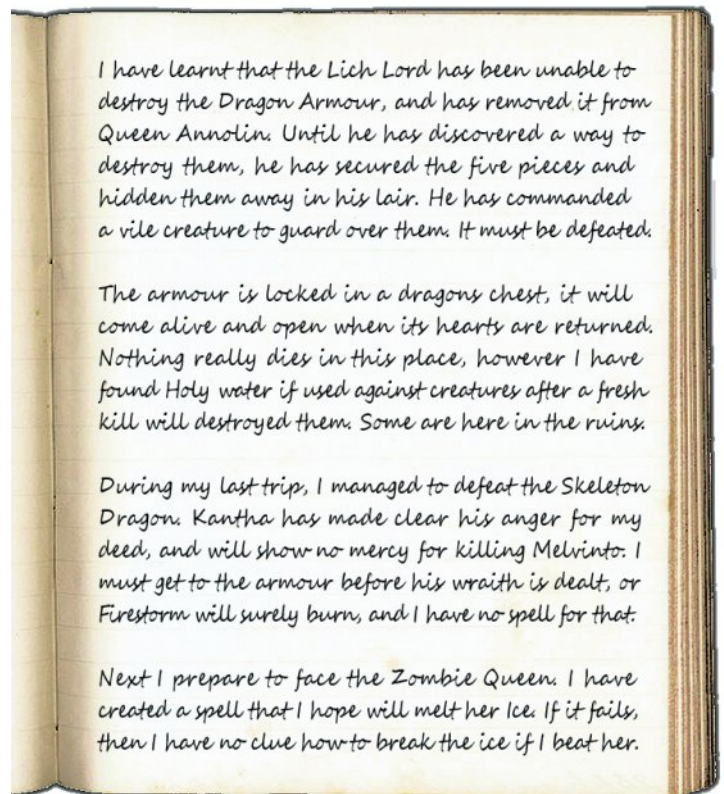 I have learnt that the Lich Lord has been unable to
destroy the Dragon Armour, and has removed it from
Queen Annolin. Until he has discovered a way to
destroy them, he has secured the five pieces and
hidden them away in his lair. He has commanded
a vile creature to guard over them. It must be defeated.
The armour is locked in a dragons chest, it will
come alive and open when its hearts are returned.
Nothing really dies in this place, however I have
found Holy water if used against creatures after a fresh
kill will destroyed them. Some are here in the ruins.
During my last trip, I managed to defeat the Skeleton
Dragon. Kantha has made clear his anger for my
deed, and will show no mercy for killing Melvinto. I
must get to the armour before his wraith is dealt, or
Firestorm will surely burn, and I have no spell for that.
Next I prepare to face the Zombie Queen. I have
created a spell that I hope will melt her Ice. If it fails,
then I have no clue how to break the ice if I beat her.